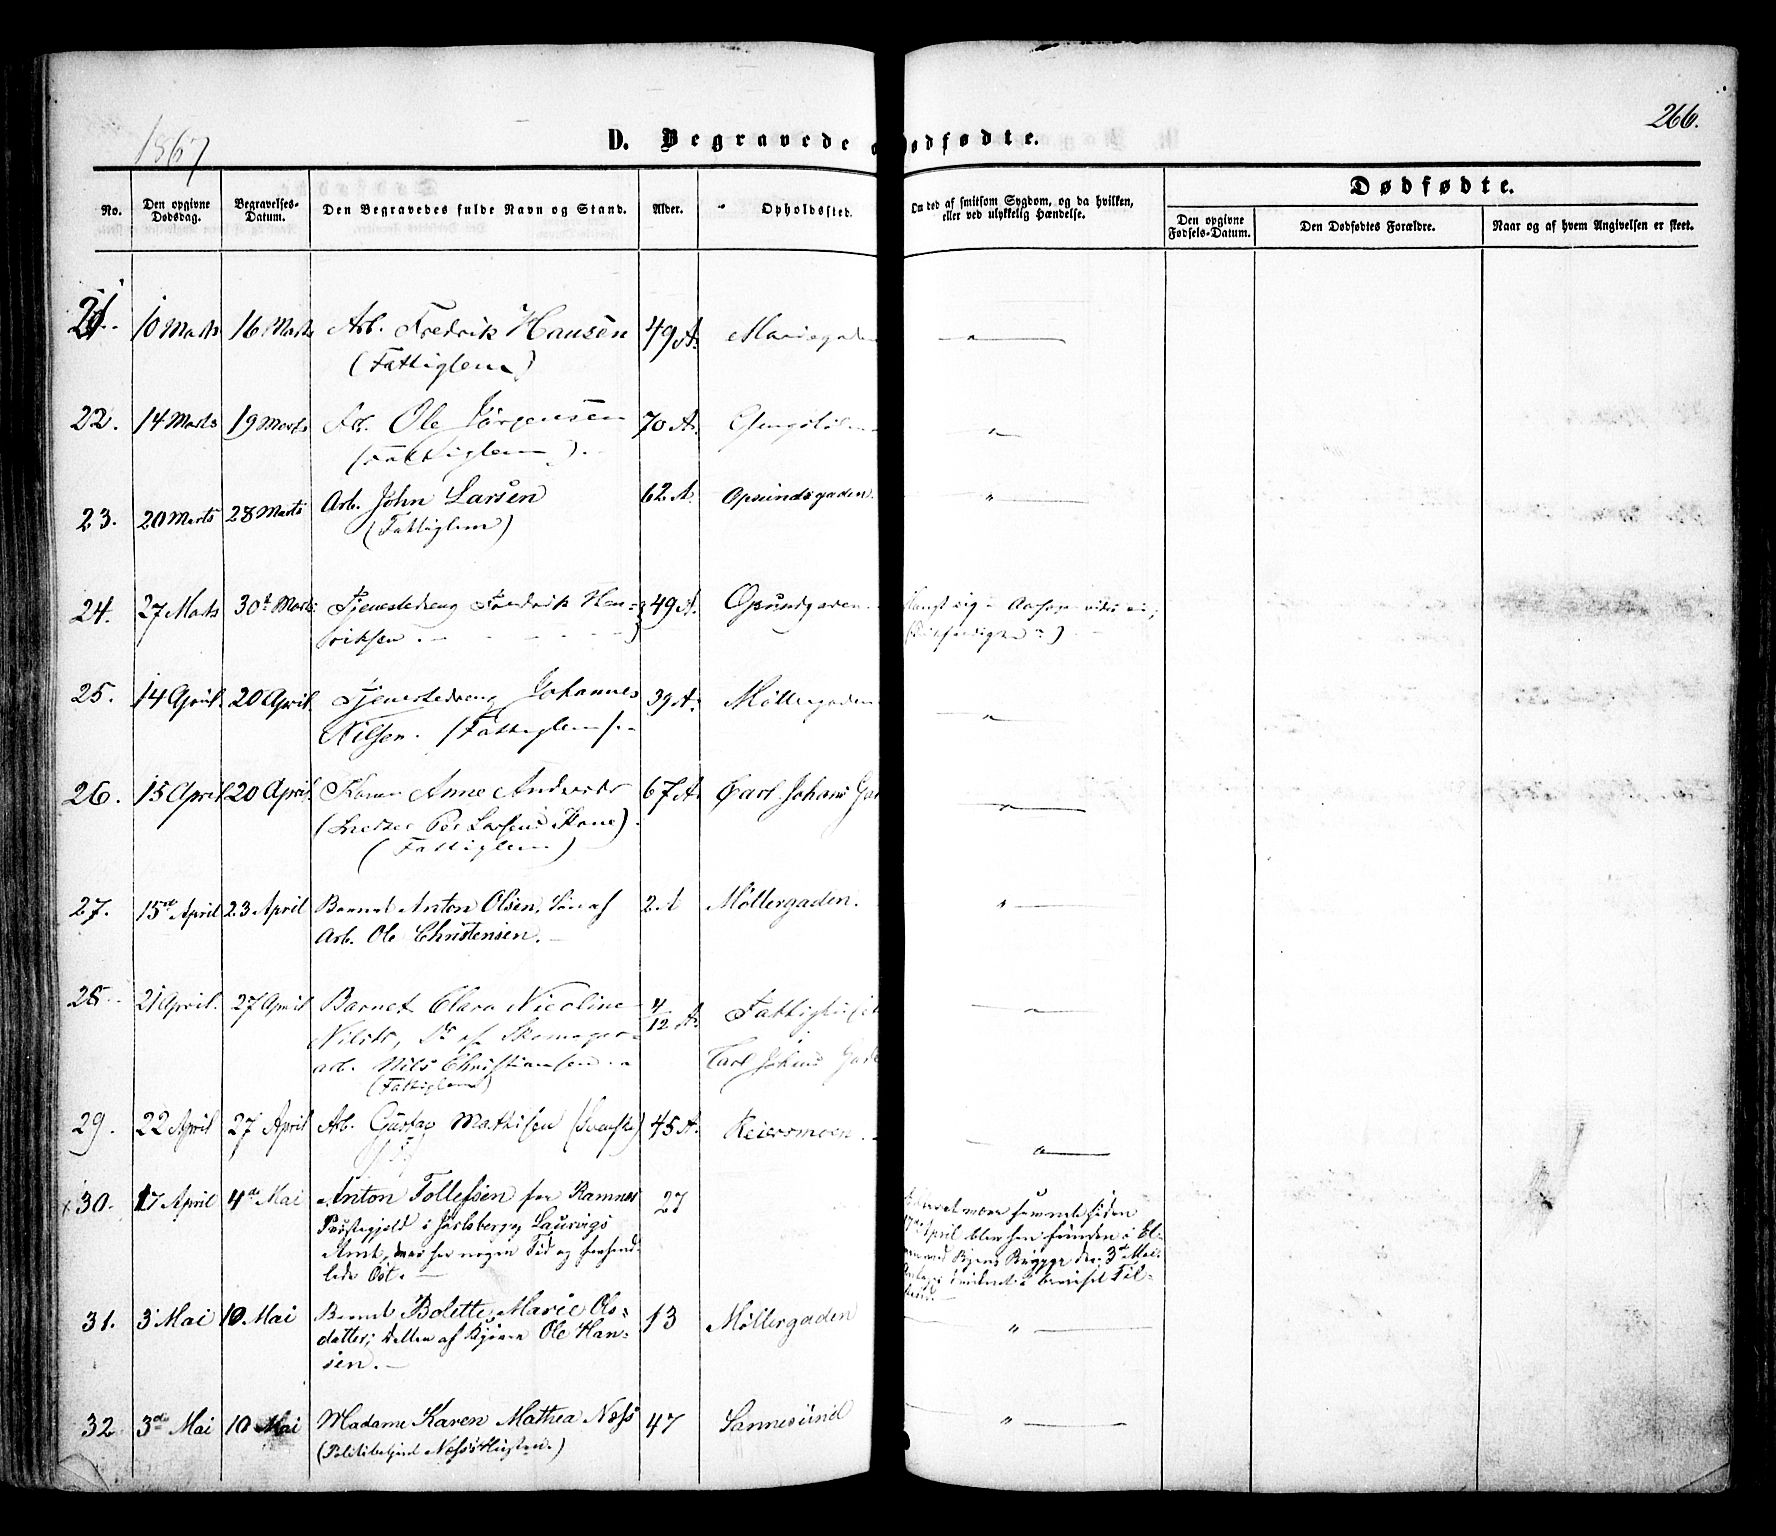 266.
1867
D. Begravede odfødte.
No.
Den opgivne Dødsdag.
Begravelses-Datum.
Den Begravedes fulde Navn og Stand.
Alder.
Opholdssted.
Om død af smitsom Sygdom, og da hvilken, eller ved ulykkelig Hændelse.
Dødfødte.
Den opgivne Fødsels-Datum.
Den Dødfødtes Forældre.
Naar og af hvem Angivelsen er skeet.
21. 10 Marts 16 Marts Arb. Fredrik Hansen 49 A. "
(Fattiglem)
22. 14 Marts 19 Marts Arb. Ole Jörgensen 70 A. "
(Fattiglem).
23. 20 Marts 28 Marts Arb. John Larsen 62 A. Opsundsgaden. "
(Fattiglem)
24. 27 Marts 30t Marts Tjenestedreng Fredrik Hen- 49 A. Opsundgaden
riksen
25. 14 April 20 April. Tjenestedreng Johannes 39 A. Møllergaden "
Nilsen. (Fattiglem)
26. 15 April 20 April. Anne 67 A. Carl Johans Gad "
(Per Larsens Kone)
(Fattiglem)
27. 15de April 23 April Barnet Anton Olsen, Søn af 2 A Møllergaden. "
Arb. Ole Christensen.
28. 21 April. 27 April Barnet Clara Nicoline /12 A. "
Nilsdr, Dr af Skomager
arb. Nils Christiansen
Carl Johans Gade
(Fattiglem)
29. 22 April 27 April Arb. Gustav Mathisen (Svensk) 45 A. Reiersmoen "
30. 17 April 4de Mai Anton Tollefsen fra Ramnes 27
Præstegjeld i Jarlsberg og Laurvigs
Amt, nogen Tid og forhand-
lede Öst.
samme siden
17de April blev han funden i
Brygge den 3de Mai
31. 3 Mai 10 Mai Barnet Bolette Marie Ols- 13 Møllergaden "
datter, Datter af Ole Han-
sen.
32. 3de Mai 10 Mai Madame Karen Mathea Næss 47 Sannesund "
(Politibetjent Næss's Hustru)